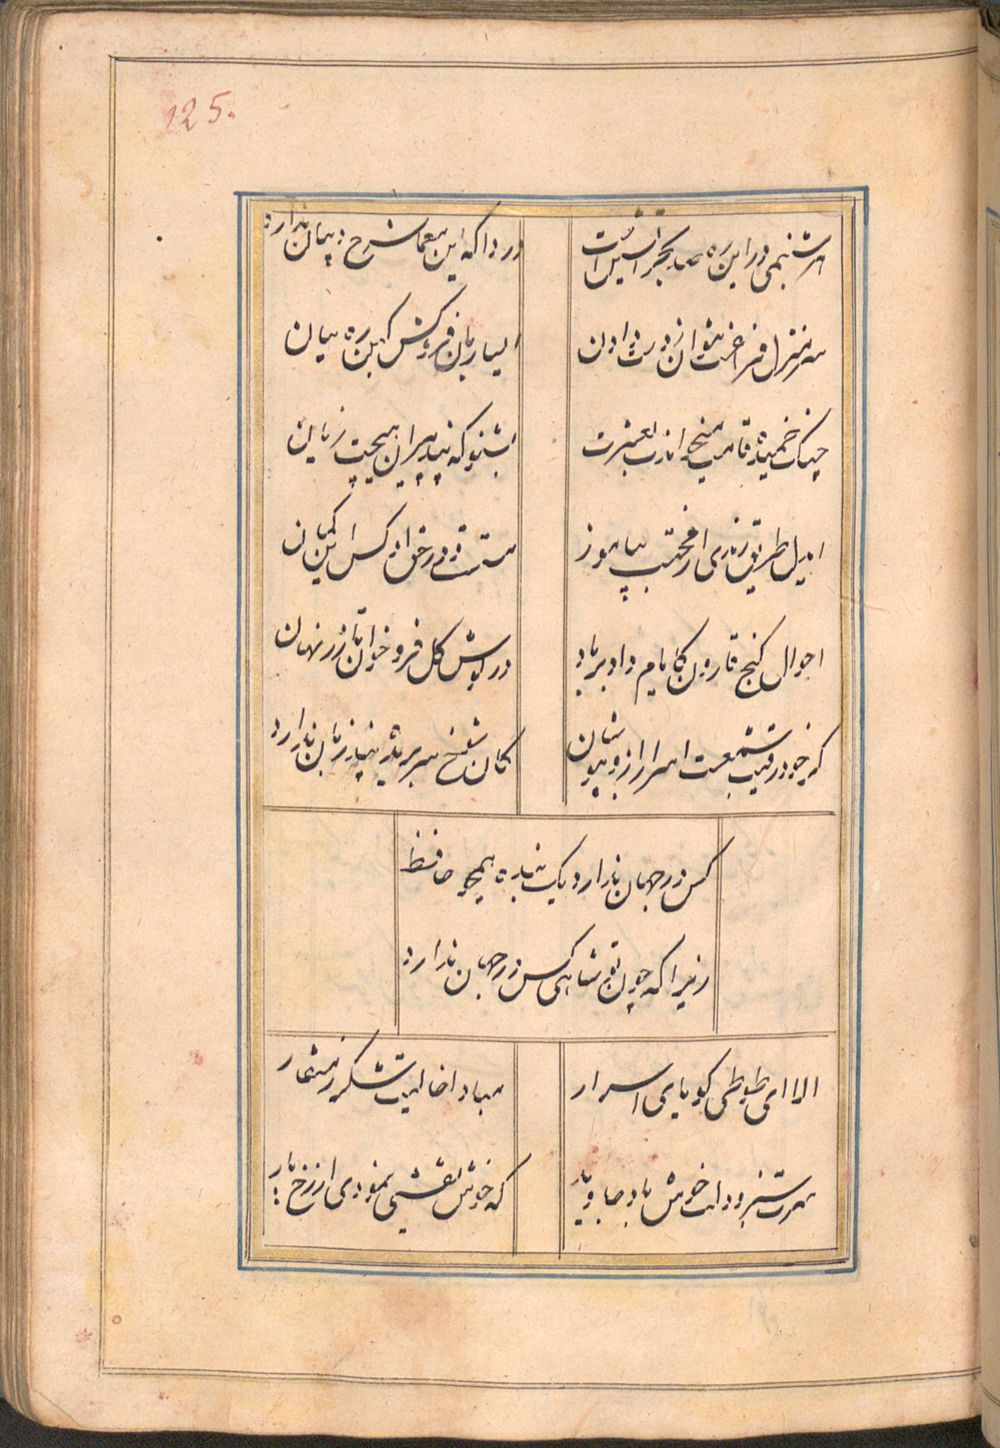 125.
هر شبنمی درین ره صد بحر آتشین است
دردا که این معما شرح و بیان ندارد
سرمنزل فراغت نتوان ز دست دادن
ای ساربان فروکش کین ره بیان
چنگ خمیده قامت میخواندت بعشرت
بشنو که پند پیران هیچت زیان
ای دل طریق رندی از محتسب بیاموز
مستست و در حق او کس این گمان
احوال گنج قارون کایام داد بر باد
در گوش گل فرو خوان تا زر نهان
گر خود رقیب شمعست اسرار ازو بپوشان
کان شوخ سر بریده بند زبان ندارد
کس در جهان ندارد یک بنده همچو حافظ
زیرا که چون تو شاهی کس در جهان ندارد
الا ای طوطی گویای اسرار
مبادا خالیت شکر ز منقار
سرت سبز و دلت خوش باد جاوید
که خوش نقشی نمودی از رخ یار